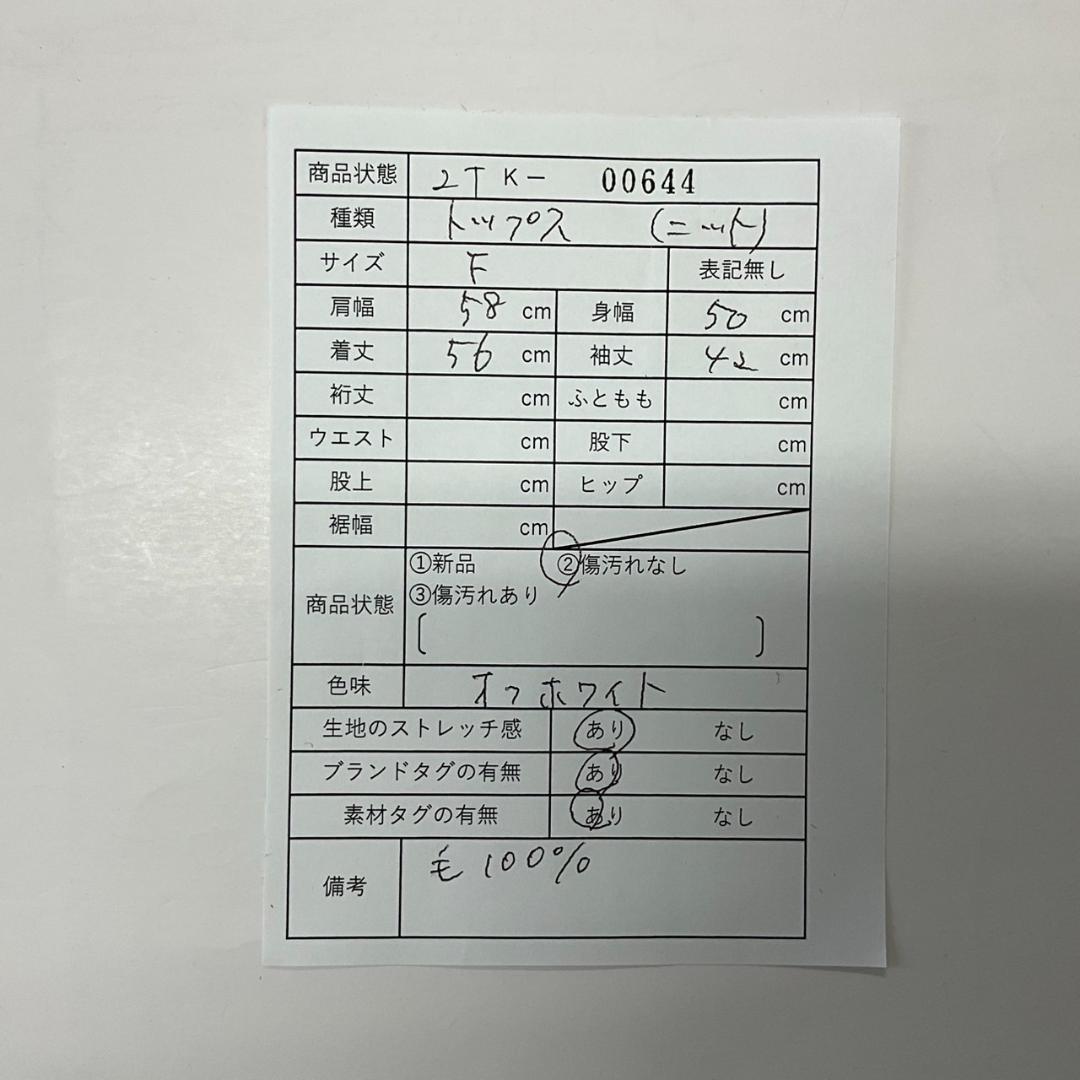 商品状態 2T K- 00644
種類 トップス (ニット)
サイズ F 表記無し
肩幅 58 cm 身幅 50 cm
着丈 56 cm 袖丈 42 cm
裄丈 cm ふともも cm
ウエスト cm 股下 cm
股上 cm ヒップ cm
裾幅 cm
商品状態 ①新品 ②傷汚れなし
③傷汚れあり
[ ]
色味 オフホワイト
生地のストレッチ感 あり なし
ブランドタグの有無 あり なし
素材タグの有無 あり なし
備考 毛100%